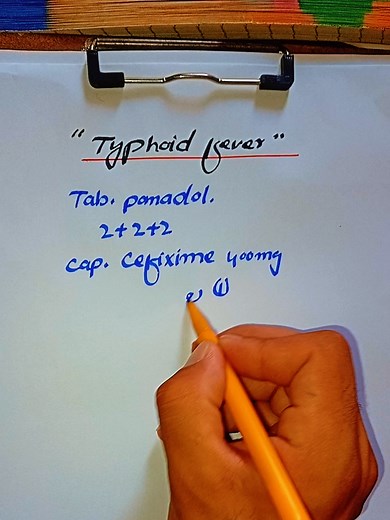 "Typhoid fever"
Tab. panadol.
2+2+2
cap. Cefixime 400mg
①